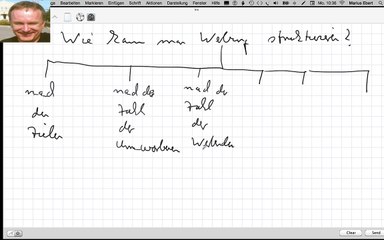 Bearbeiten Markieren Einfügen Format Aktionen Darstellung Fenster Hilfe
Mo. 10:36 Marius Ebert
Wie kann man Werbung strukturieren?
nach
den
Zielen
nach der
Zahl
der
Umworbenen
nach der
Zahl
der
Werbenden
Clear
Send